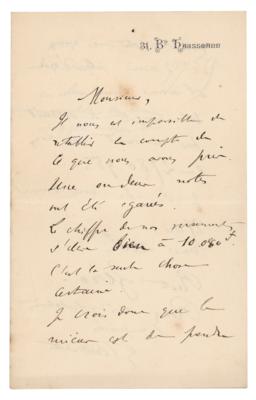 31, Bd Haussmann
Monsieur,
Il nous est impossible de
rétablir le compte de
ce que nous avons pris.
Une ou deux notes
ont été égarées.
Le chiffre de nos versements
s'élève bien à 10.080 f
C'est la seule chose
certaine.
Je crois donc que le
mieux est de prendre